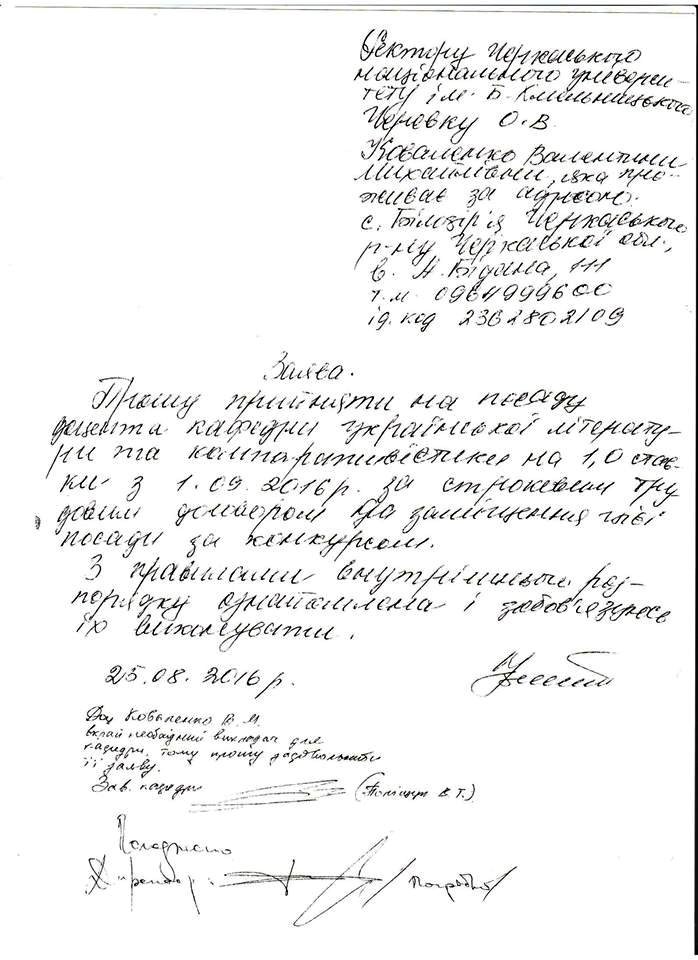 Ректору Черкаського
національного універси-
тету ім. Б. Хмельницького
Черевку О.В.
Коваленко Валентини
Михайлівни, яка про-
живає за адресою:
с. Білозір'я Черкаського
р-ну Черкаської обл.,
в. Бідана, 111
т.м. 0964999600
ід. код 2362802109
Заява.
Прошу прийняти на посаду
доцента кафедри української літерату-
ри та компаративістики на 1,0 став-
ки з 1.09.2016р. за строковим тру-
довим договором до заміщення цієї
посади за конкурсом.
З правилами внутрішнього роз-
порядку ознайомлена і зобов'язуюсь
їх виконувати.
25.08.2016р.
Доц Коваленко В.М.
вкрай необхідний викладач для
кафедри, тому прошу задовольнити
її заяву.
Зав. кафедри (Поліщук В.Т.)
Погоджено
Директор: